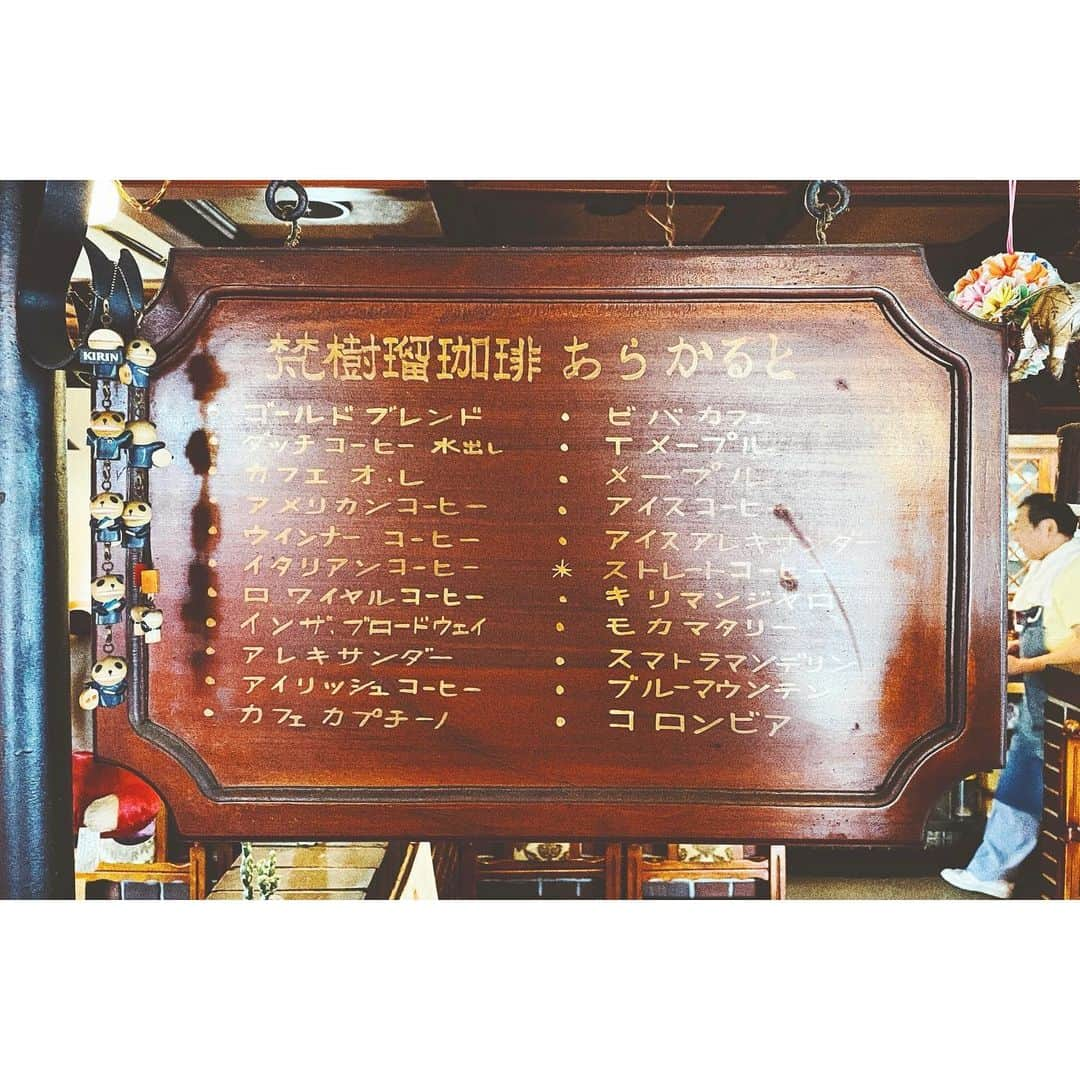 梵樹瑠珈琲 あらかると
・ゴールドブレンド
・ダッチコーヒー 水出し
・カフェオ・レ
・アメリカンコーヒー
・ウインナー コーヒー
・イタリアンコーヒー
・ロワイヤルコーヒー
・インザ、ブロードウェイ
・アレキサンダー
・アイリッシュコーヒー
・カフェカプチーノ
・ビバカフェ
・Tメープル
・メープル
・アイスコーヒー
・アイスアレキサンダー
＊ストレートコーヒー
・キリマンジャロ
・モカマタリー
・スマトラマンデリン
・ブルーマウンテン
・コロンビア
KIRIN